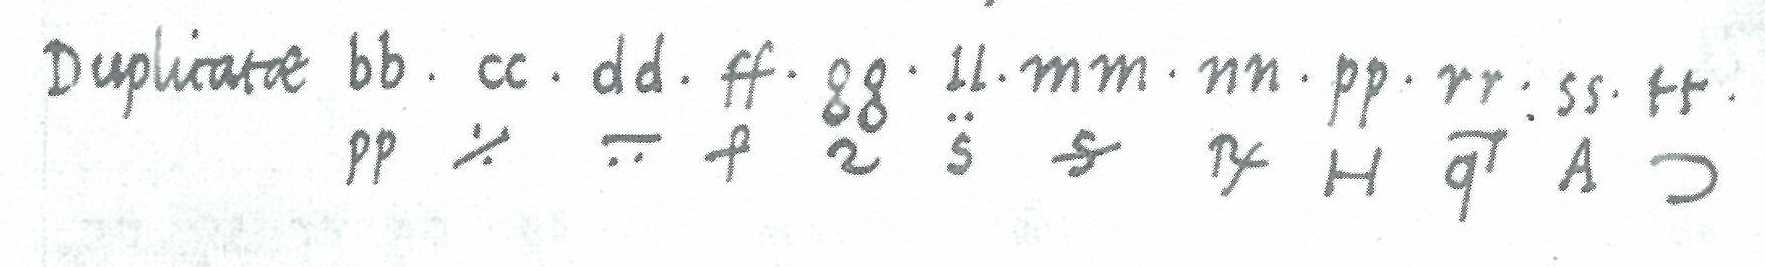 Duplicatæ bb . cc . dd . ff . gg . ll . mm . nn . pp . rr . ss . tt .
pp ∻ f 2 s̈ H q A ⊃